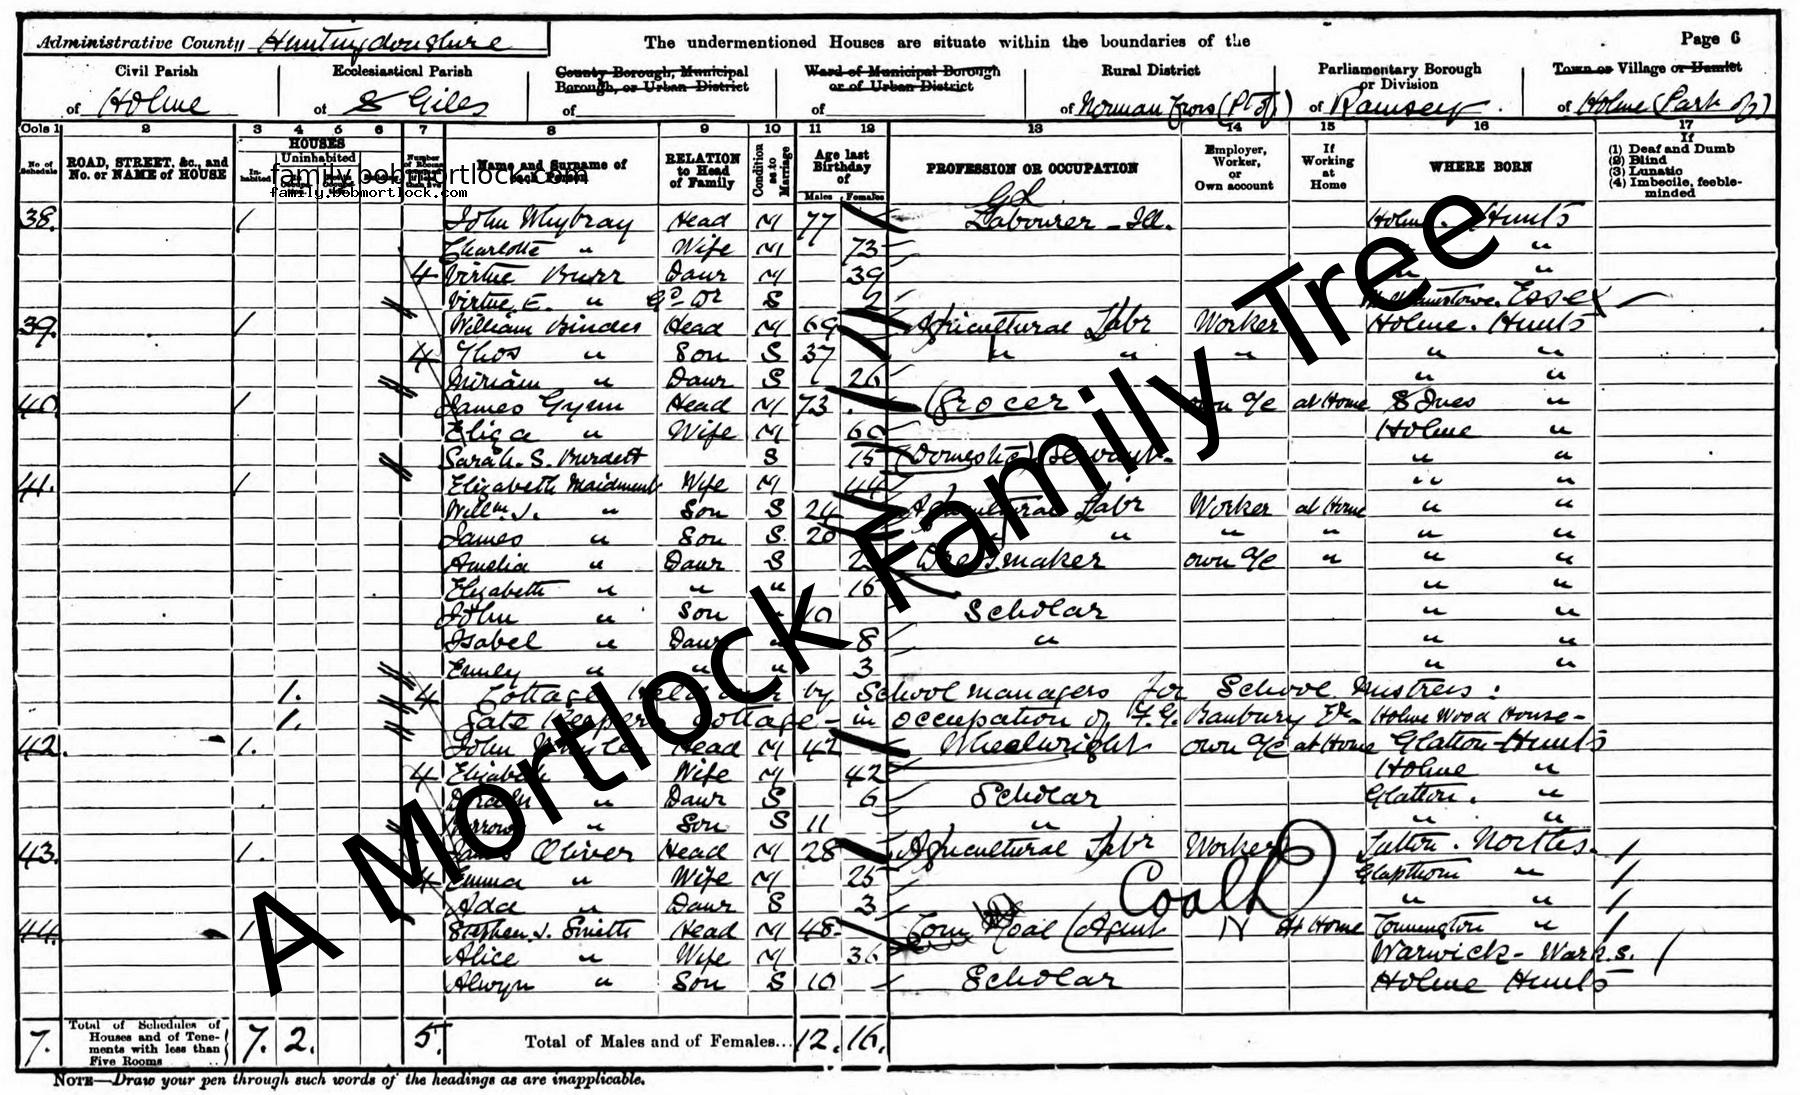 Administrative County Huntingdonshire The undermentioned Houses are situate within the boundaries of the Page 6
Civil Parish Ecclesiastical Parish County Borough, Municipal Borough, or Urban District Ward of Municipal Borough or of Urban District Rural District Parliamentary Borough or Division Town or Village or Hamlet
of Holme of St Giles of of of Norman Cross (Pt of) of Ramsey of Holme (Part of)
Cols 1 2 3 4 5 6 7 8 9 10 11 12 13 14 15 16 17
No. of Schedule ROAD, STREET, &c., and No. or NAME of HOUSE HOUSES Inhabited Uninhabited Name and Surname of each Person RELATION to Head of Family Condition as to Marriage Age last Birthday of Males Females PROFESSION OR OCCUPATION Employer, Worker, or Own account If Working at Home WHERE BORN If (1) Deaf and Dumb (2) Blind (3) Lunatic (4) Imbecile, feeble-minded
family.bobmortlock.com
family.bobmortlock.com
38. 1 John Whybray Head M 77 Labourer - Ill. Holme. Hunts
Charlotte " Wife M 73 " "
4 Virtue Burr Daur M 39 " "
Virtue E. " Gd Dr S 2 Walthamstowe. Essex
39. 1 William Binder Head M 69 Agricultural Labr Worker Holme. Hunts
4 Thos " Son S 37 " " " " "
Miriam " Daur S 26 " "
40. 1 James Gynn Head M 73 Grocer own a/c at Home St Ives "
Eliza " Wife M 60 Holme "
Sarah. S. Burdett S 15 (Domestic) Servant. " "
41. 1 Elizabeth Maidment Wife M 44 " "
Willm J. " Son S 24 Agricultural Labr Worker at Home " "
James " Son S 20 " " " " "
Amelia " Daur S Dressmaker own a/c " " "
Elizabeth " " " 16 " "
John " Son " 10 Scholar " "
Isabel " Daur " 8 " " "
Emily " " " 3 " "
1. 4 Cottage by School managers for School Mistress:
1. Gate Keepers Cottage - in occupation of Banbury Holme Wood House -
42. 1. John Head M 42 Wheelwright own a/c at Home Glatton Hunts
4 Elizabeth " Wife M 42 Holme "
" Daur S 6 Scholar Glatton. "
" Son S 11 " " "
43. 1. James Oliver Head M 28 Agricultural Labr Worker Lutton. Northts.
4 Emma " Wife M 25 Glapthorn "
Ada " Daur S 3 " "
44. 1 Stephen. J. Smith Head M 48 Corn Coal (Agent Coal N At Home "
Alice " Wife M 36 Warwick - Warks.
Alwyn " Son S 10 Scholar Holme Hunts
7. Total of Schedules of Houses and of Tenements with less than Five Rooms 7. 2. 5. Total of Males and of Females... 12. 16.
NOTE—Draw your pen through such words of the headings as are inapplicable.
A Mortlock Family Tree